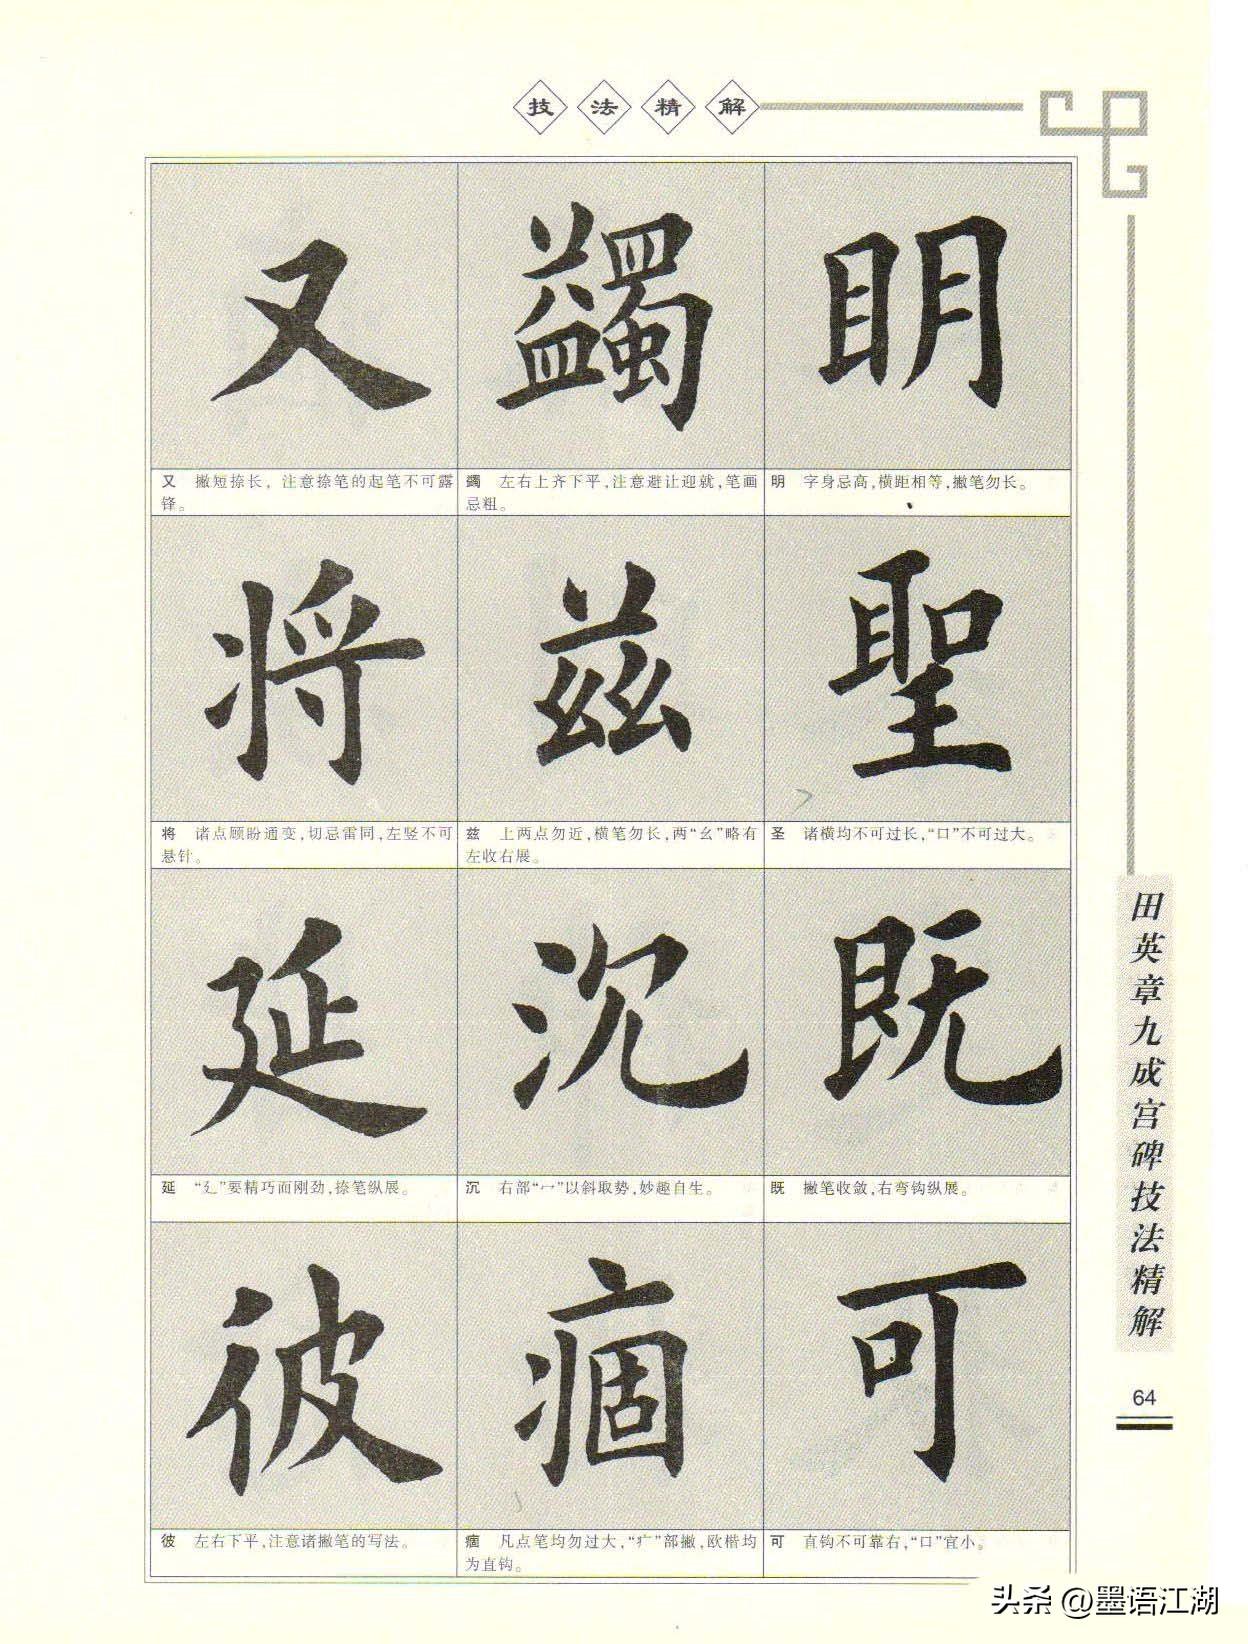 技法精解
明
明 字身忌高,横距相等,撇笔勿长。
聖
圣 诸横均不可过长,“口”不可过大。
既
既 撇笔收敛,右弯钩纵展。
可
可 直钩不可靠右,“口”宜小。
蠲
蠲 左右上齐下平,注意避让迎就,笔画
忌粗。
兹
兹 上两点勿近,横笔勿长,两“幺”略有
左收右展。
沉
沉 右部“冖”以斜取势,妙趣自生。
痼
痼 凡点笔均勿过大,“疒”部撇,欧楷均
为直钩。
又
又 撇短捺长,注意捺笔的起笔不可露
锋。
将
将 诸点顾盼通变,切忌雷同,左竖不可
悬针。
延
延 “廴”要精巧而刚劲,捺笔纵展。
彼
彼 左右下平,注意诸撇笔的写法。
田英章九成宫碑技法精解
64
头条 @墨语江湖